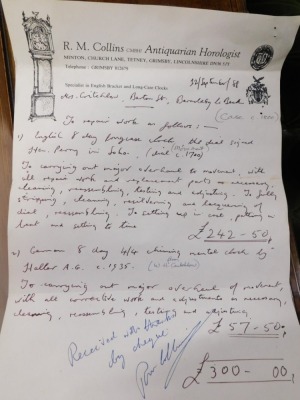 R. M. Collins CMBHI Antiquarian Horologist
MINTON, CHURCH LANE, TETNEY, GRIMSBY, LINCOLNSHIRE
Telephone: GRIMSBY
Specialist in English Bracket and Long-Case Clocks.
September
Barnoldby le Beck
To repair work as
follows:—
1) English 8 day longcase clock, the dial signed
in Soho. (dial c. 1700)
To carrying out major overhaul to movement, with
all repair work and replacement parts as necessary,
cleaning, reassembling, testing and adjusting. To fully
stripping, cleaning, resilvering and lacquering of
dial, reassembling. To setting up in case, putting in
beat and setting to time
£242-50
2) German 8 day 4/4 chiming mantel clock by
Haller A.G. c. 1935.
To carrying out major overhaul of movement,
with all work and adjustments as necessary,
cleaning, reassembling, testing and adjusting.
£57-50
Received with thanks
by cheque
£300-00